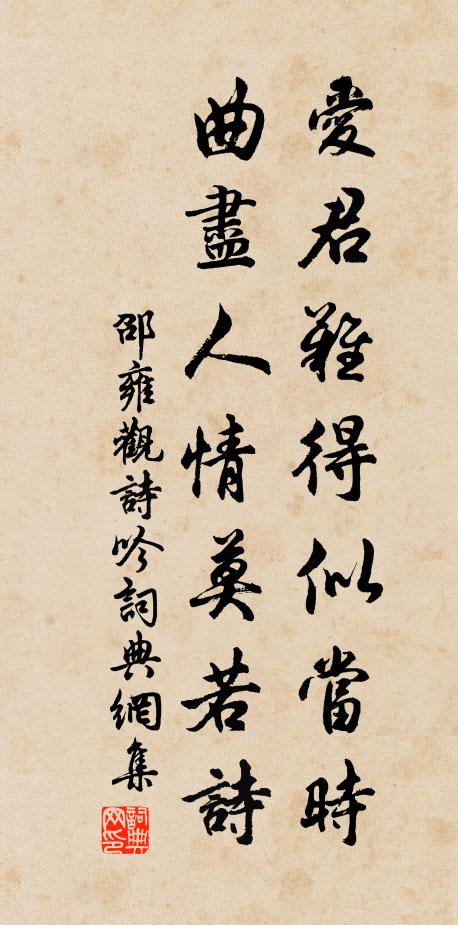 愛君難得似當時
曲盡人情莫若詩
邵雍觀詩吟詞典網集
詞典網印